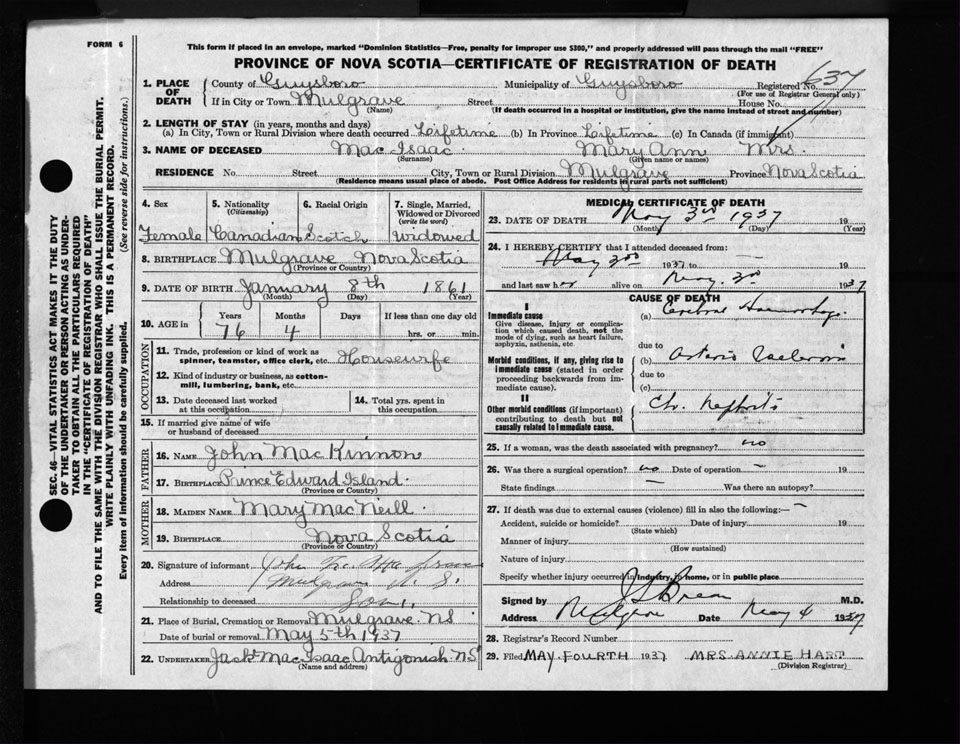 FORM 6
This form if placed in an envelope, marked "Dominion Statistics—Free, penalty for improper use $300," and properly addressed will pass through the mail "FREE"
PROVINCE OF NOVA SCOTIA—CERTIFICATE OF REGISTRATION OF DEATH
SEC. 46—VITAL STATISTICS ACT MAKES IT THE DUTY
OF THE UNDERTAKER OR PERSON ACTING AS UNDER-
TAKER TO OBTAIN ALL THE PARTICULARS REQUIRED
IN THE "CERTIFICATE OF REGISTRATION OF DEATH"
AND TO FILE THE SAME WITH THE DIVISION REGISTRAR WHO SHALL ISSUE THE BURIAL PERMIT.
WRITE PLAINLY WITH UNFADING INK. THIS IS A PERMANENT RECORD.
Every item of information should be carefully supplied. (See reverse side for instructions.)
1. PLACE OF DEATH County of Guysboro Municipality of Guysboro Registered No. 637
(For use of Registrar General only)
If in City or Town Mulgrave Street House No.
(Name) (If death occurred in a hospital or institution, give the name instead of street and number)
2. LENGTH OF STAY (in years, months and days)
(a) In City, Town or Rural Division where death occurred Lifetime (b) In Province Lifetime (c) In Canada (if immigrant)
3. NAME OF DECEASED Mac Isaac Mary Ann Mrs.
(Surname) (Given name or names)
RESIDENCE No. Street City, Town or Rural Division Mulgrave Province Nova Scotia
(Residence means usual place of abode. Post Office Address for residents in rural parts not sufficient)
4. Sex
Female
5. Nationality
(Citizenship)
Canadian
6. Racial Origin
Scotch
7. Single, Married,
Widowed or Divorced
(write the word)
Widowed
8. BIRTHPLACE Mulgrave Nova Scotia
(Province or Country)
9. DATE OF BIRTH January 8th 1861
(Month) (Day) (Year)
10. AGE in Years Months Days If less than one day old
76 4 hrs. or min.
OCCUPATION
11. Trade, profession or kind of work as
spinner, teamster, office clerk, etc. Housewife
12. Kind of industry or business, as cotton-
mill, lumbering, bank, etc.
13. Date deceased last worked
at this occupation
14. Total yrs. spent in
this occupation
15. If married give name of wife
or husband of deceased
FATHER
16. NAME John Mac Kinnon
17. BIRTHPLACE Prince Edward Island
(Province or Country)
MOTHER
18. MAIDEN NAME Mary Mac Neill
19. BIRTHPLACE Nova Scotia
(Province or Country)
20. Signature of informant John
Address Mulgrave N. S.
Relationship to deceased Son.
21. Place of Burial, Cremation or Removal Mulgrave NS
Date of burial or removal May 5th 1937
22. UNDERTAKER Jack Mac Isaac Antigonish NS
(Name and address)
MEDICAL CERTIFICATE OF DEATH
23. DATE OF DEATH May 3rd 1937 19
(Month) (Day) (Year)
24. I HEREBY CERTIFY that I attended deceased from:
May 3rd 1937 to — 19
and last saw her alive on May 3rd 1937
CAUSE OF DEATH
I
Immediate cause
Give disease, injury or complica-
tion which caused death, not the
mode of dying, such as heart failure,
asphyxia, asthenia, etc.
(a) Cerebral Haemorrhage
due to
Morbid conditions, if any, giving rise to
immediate cause (stated in order
proceeding backwards from im-
mediate cause).
(b) Arterio Sclerosis
due to
(c)
II
Other morbid conditions (if important)
contributing to death but not
causally related to immediate cause.
Ch. Nephritis
25. If a woman, was the death associated with pregnancy? no
26. Was there a surgical operation? no Date of operation — 19
State findings — Was there an autopsy?
27. If death was due to external causes (violence) fill in also the following:— —
Accident, suicide or homicide? Date of injury 19
(State which)
Manner of injury
(How sustained)
Nature of injury
Specify whether injury occurred in industry, in home, or in public place
Signed by M.D.
Address Mulgrave Date May 4 1937
28. Registrar's Record Number
29. Filed MAY FOURTH 1937 MRS. ANNIE HART
(Division Registrar)